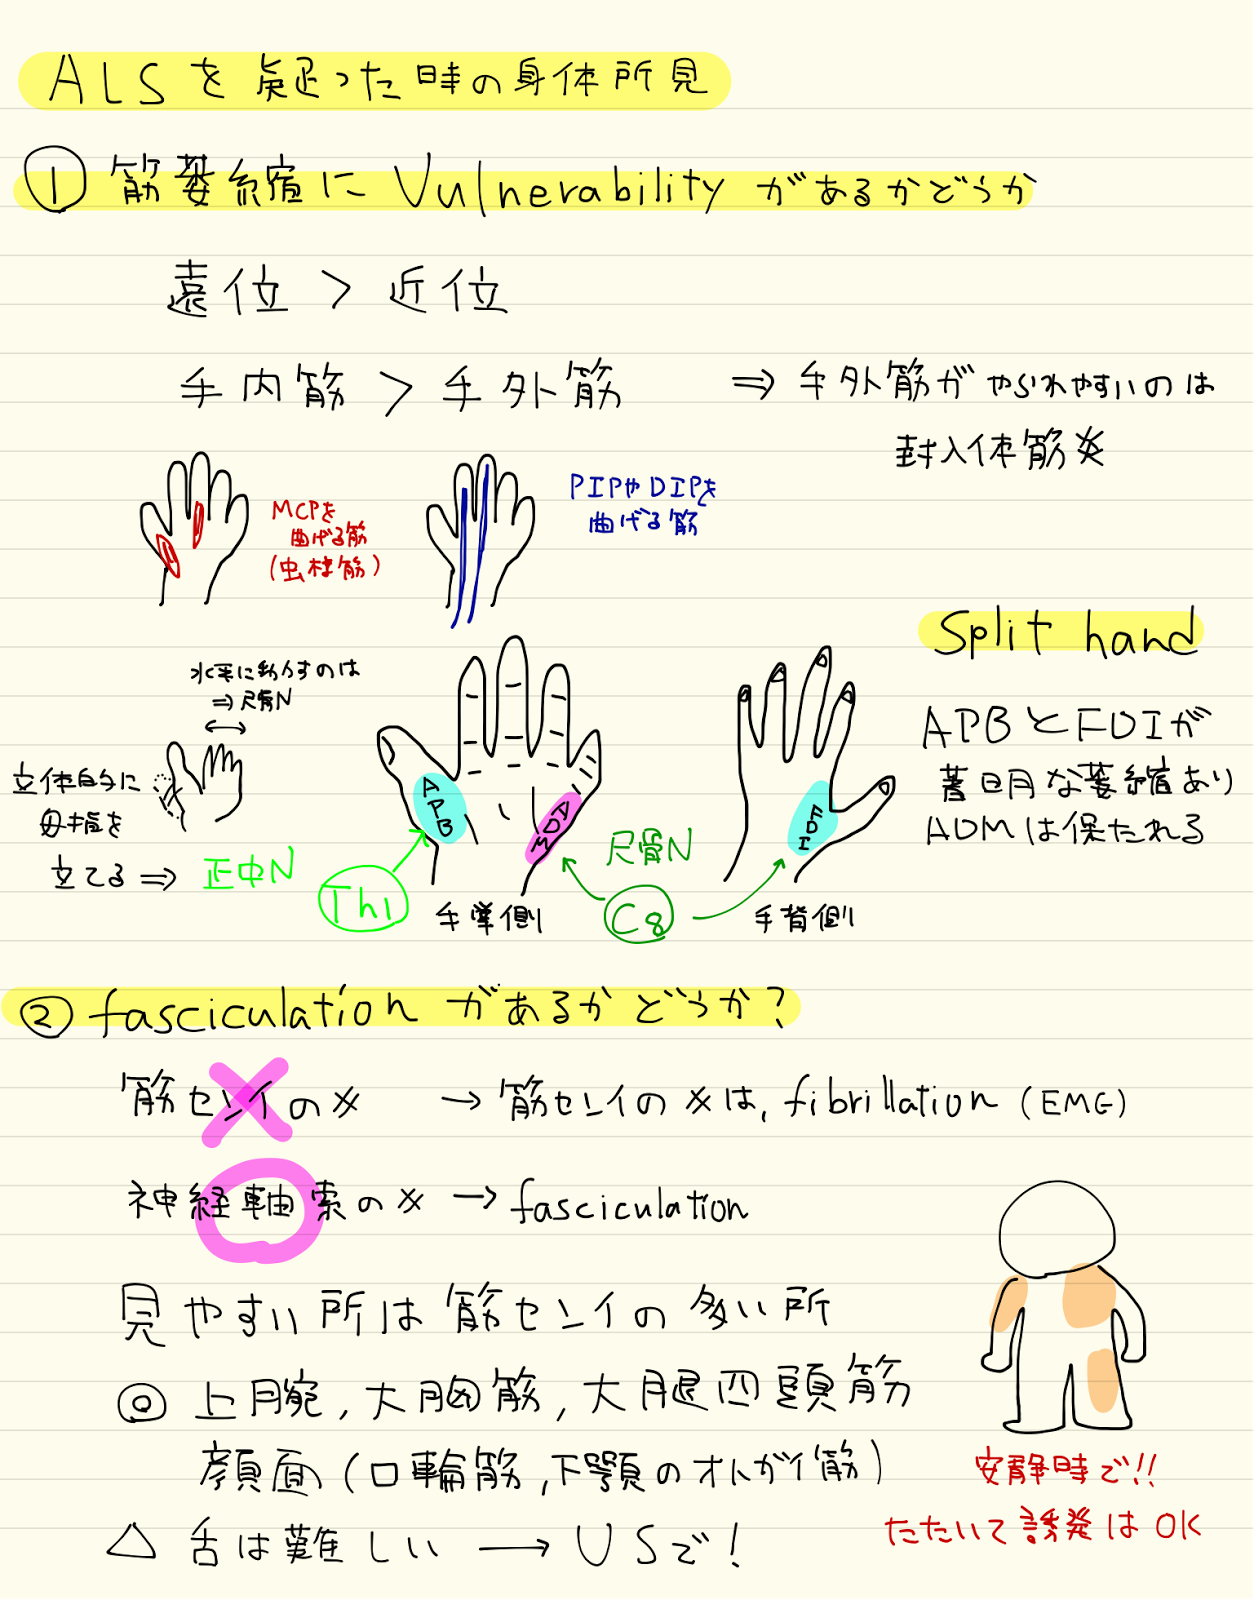 ALSを疑った時の身体所見
① 筋萎縮にVulnerabilityがあるかどうか
遠位 > 近位
手内筋 > 手外筋 ⇒ 手外筋がやられやすいのは
封入体筋炎
MCPを
曲げる筋
(虫様筋)
PIPやDIPを
曲げる筋
Split hand
APBとFDIが
著明な萎縮あり
ADMは保たれる
水平に動かすのは
⇒ 尺骨N
立体的に
母指を
立てる ⇒ 正中N
APB
ADM
FDI
Th1
尺骨N
C8
手掌側
手背側
② fasciculationがあるかどうか?
筋センイの× → 筋センイの×は, fibrillation (EMG)
神経軸索の× → fasciculation
見やすい所は筋センイの多い所
◎ 上腕, 大胸筋, 大腿四頭筋
顔面 (口輪筋, 下顎のオトガイ筋)
△ 舌は難しい → USで!
安静時で!!
たたいて誘発はOK